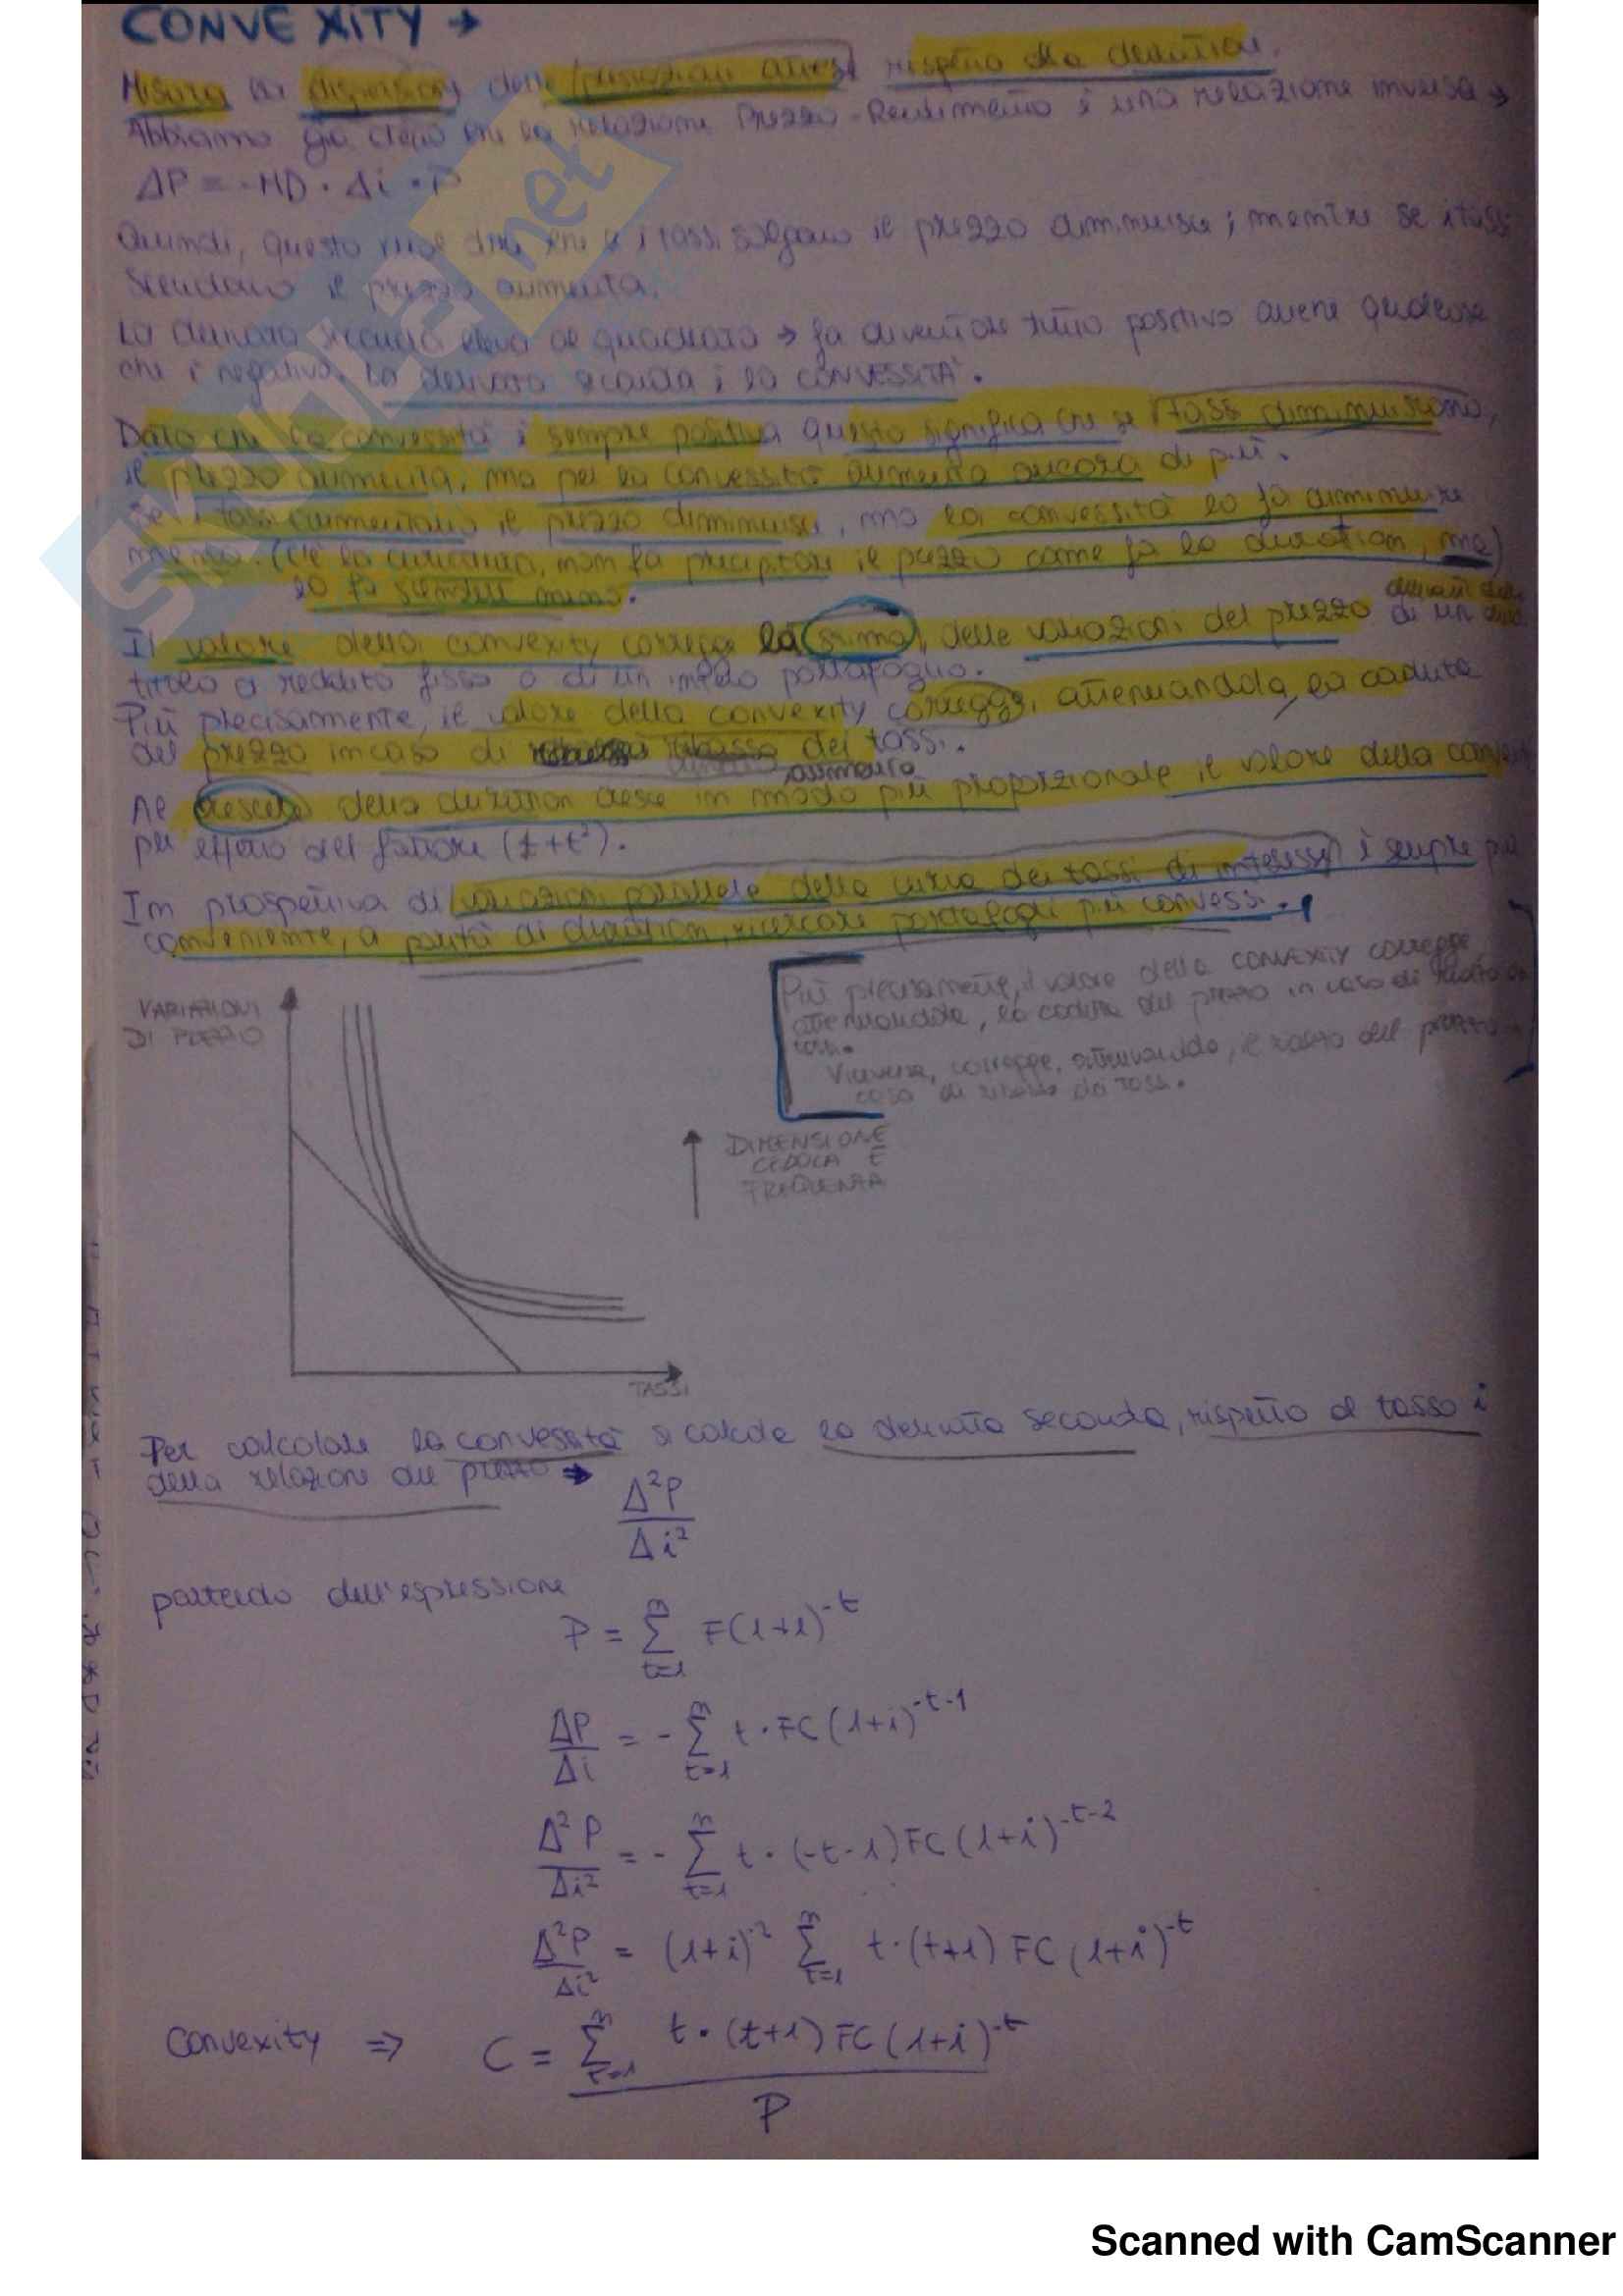 CONVEXITY →
Misura la dispersione delle posizioni attese rispetto alla duration.
Abbiamo già detto che la relazione Prezzo-Rendimento è una relazione inversa →
ΔP = -MD · Δi · P
Quindi, questo vuol dire che se i tassi salgono il prezzo diminuisce; mentre se i tassi
scendono il prezzo aumenta.
La derivata seconda eleva al quadrato → fa diventare tutto positivo anche qualcosa
che è negativo. La derivata seconda è la CONVESSITÀ.
Dato che la convessità è sempre positiva questo significa che se i tassi diminuiscono,
il prezzo aumenta, ma per la convessità aumenta ancora di più.
Se i tassi aumentano il prezzo diminuisce, ma la convessità lo fa diminuire
meno. (C'è la curvatura, non fa precipitare il prezzo come fa la duration, ma)
lo fa scendere meno.
Il valore della convexity corregge la stima, delle variazioni del prezzo di un
titolo a reddito fisso o di un intero portafoglio.
Più precisamente, il valore della convexity corregge, attenuandola, la caduta
del prezzo in caso di dei tassi.
aumento
Al crescere della duration cresce in modo più proporzionale il valore della
per effetto del fattore (t+t²).
In prospettiva di variazioni parallele della curva dei tassi di interesse, è sempre più
conveniente, a parità di duration, ricercare portafogli più convessi.
Più precisamente, il valore della CONVEXITY corregge,
attenuandola, la caduta del prezzo in caso di rialzo
tassi.
Viceversa, corregge, attenuando, il rialzo del prezzo in
caso di ribasso dei tassi.
VARIAZIONI
DI PREZZO
DIMENSIONE
CEDOLA E
FREQUENZA
TASSI
Per calcolare la convessità si calcola la derivata seconda, rispetto al tasso i
della relazione del prezzo →
Δ²P
Δi²
partendo dall'espressione
P = ∑ t=1 n F(1+i)^-t
ΔP/Δi = - ∑ t=1 n t · FC (1+i)^-t-1
Δ²P/Δi² = - ∑ t=1 n t · (-t-1) FC (1+i)^-t-2
Δ²P/Δi² = (1+i)^-2 ∑ t=1 n t · (t+1) FC (1+i)^-t
Convexity ⇒ C = ∑ t=1 n t · (t+1) FC (1+i)^-t
P
SKUOLA.net
Scanned with CamScanner